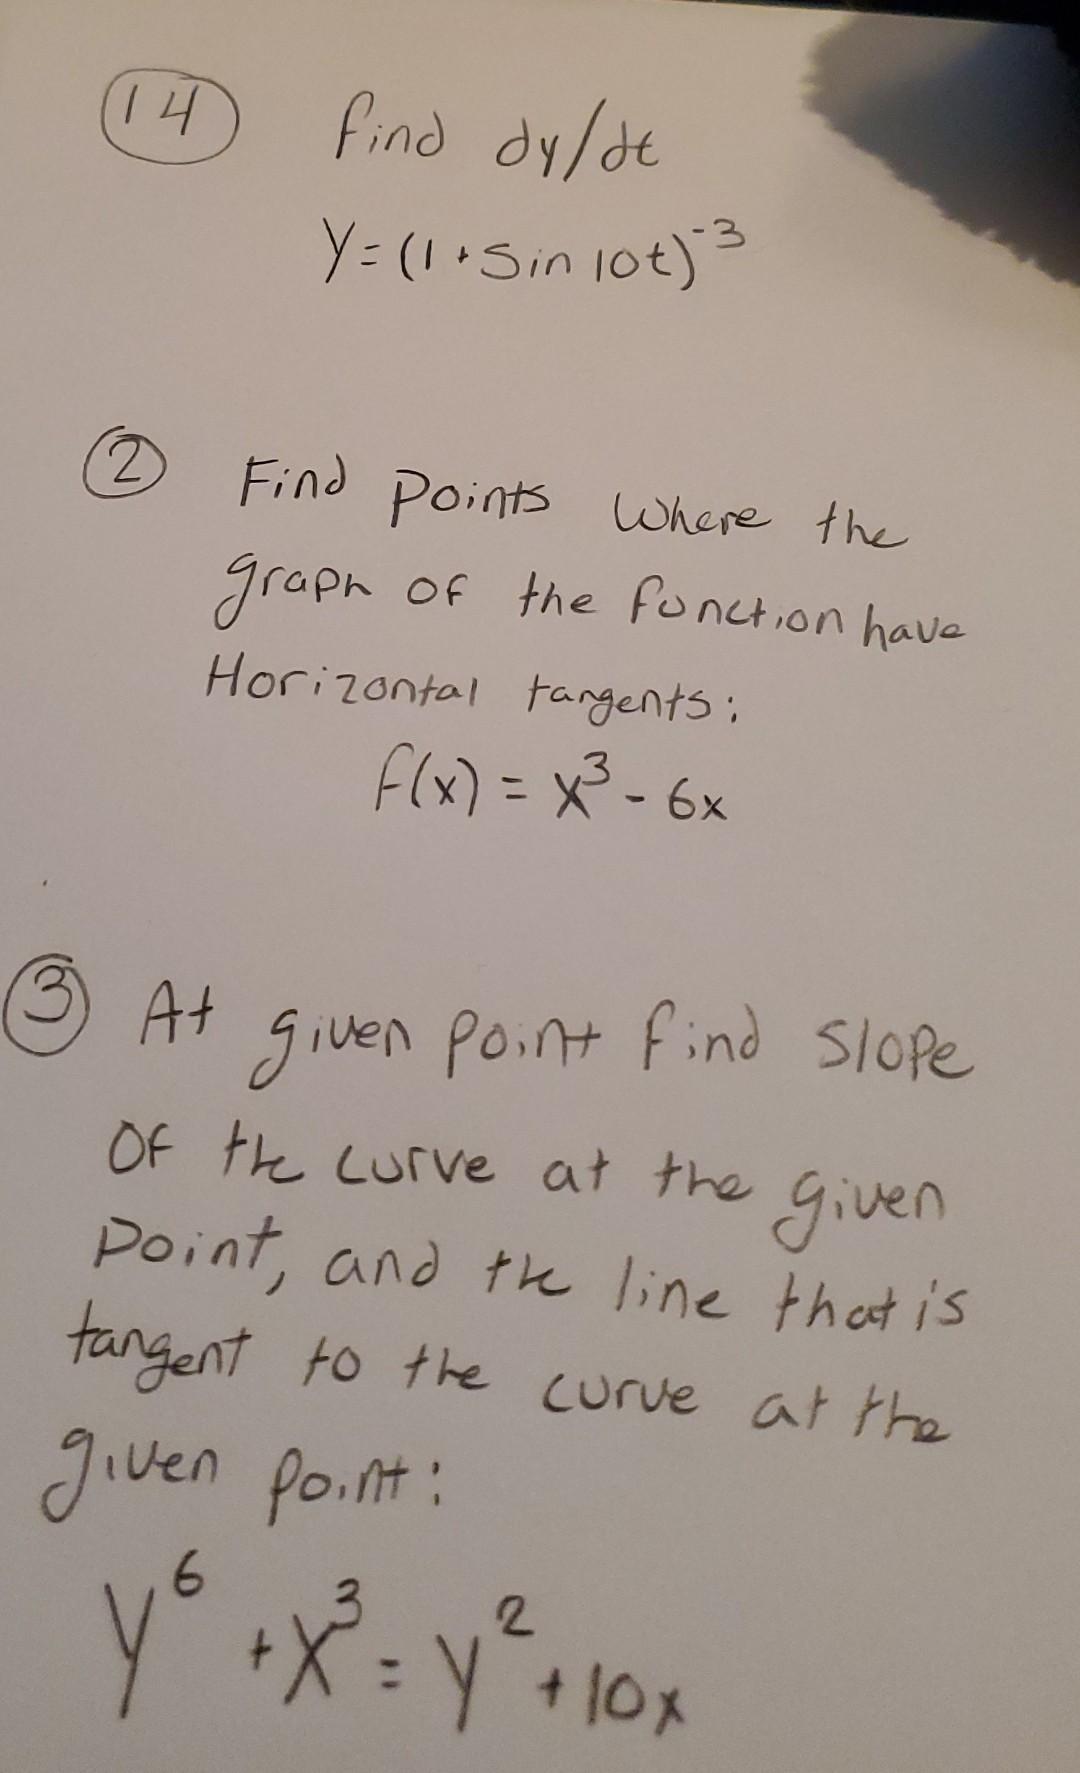 14 find dy/dt
y=(1+sin 10t)^-3
2 Find points where the
graph of the function have
Horizontal tangents:
f(x) = x^3 - 6x
3 At given point find slope
of the curve at the given
point, and the line that is
tangent to the curve at the
given point:
y^6 + x^3 = y^2 + 10x